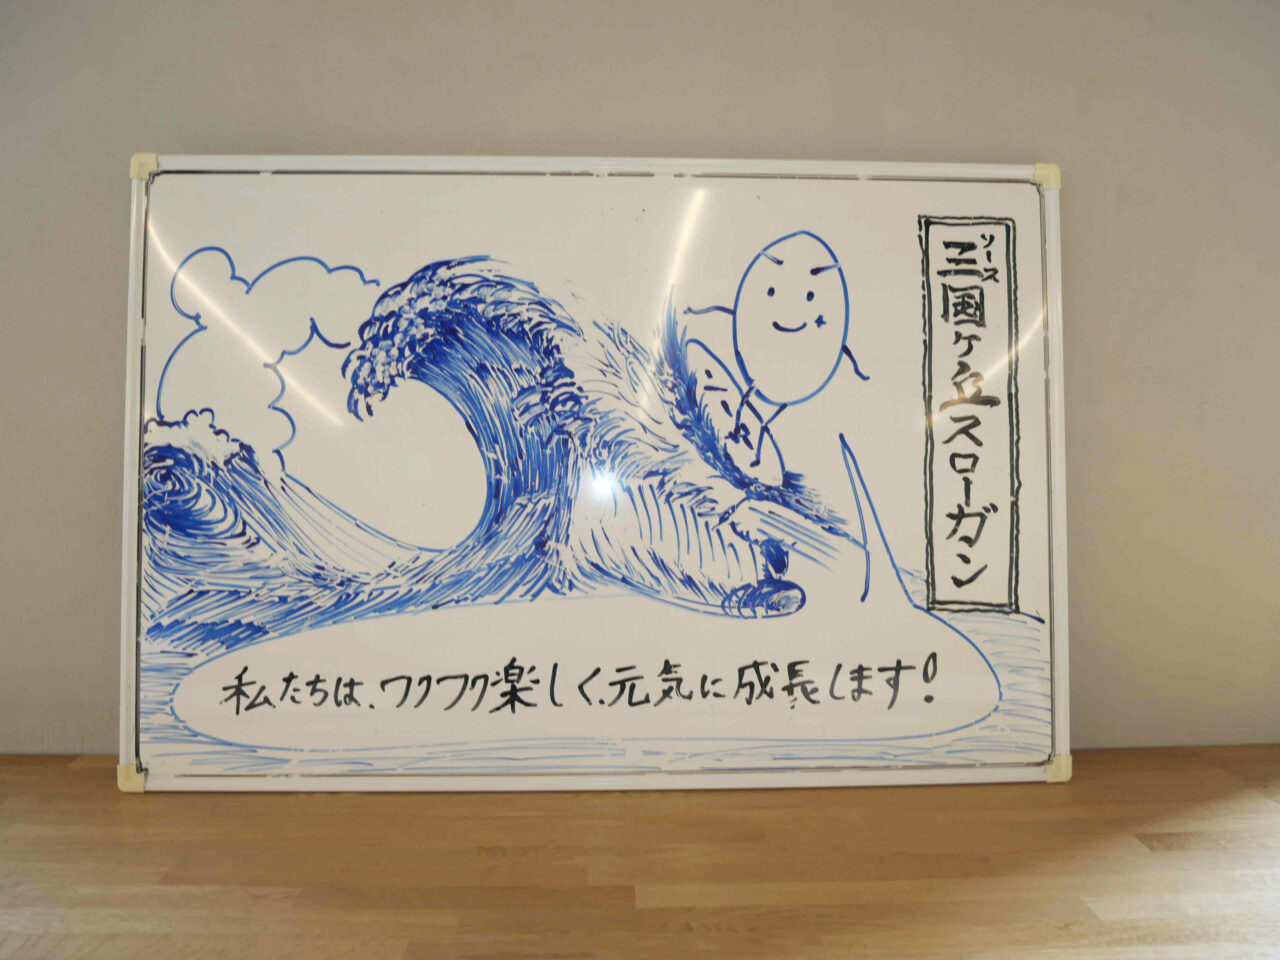 ソース
三国ヶ丘スローガン
私たちは、ワクワク楽しく、元気に成長します!